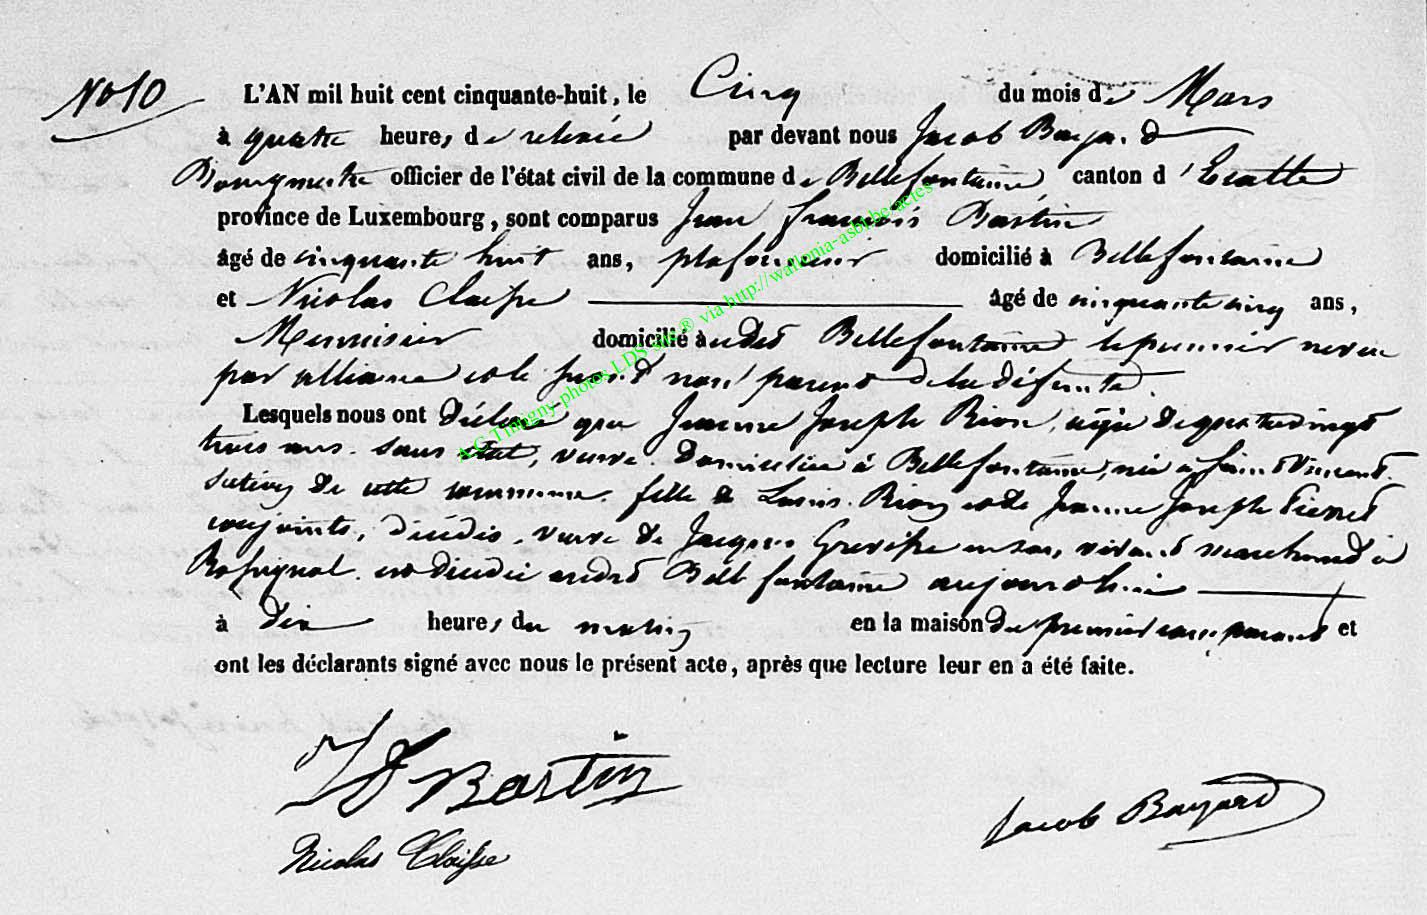 No 10
L'AN mil huit cent cinquante-huit, le Cinq du mois de Mars
à quatre heures de relevée par devant nous Jacob Bayard
Bourgmestre officier de l'état civil de la commune de Bellefontaine canton d'Etalle
province de Luxembourg, sont comparus Jean François Bastin
âgé de cinquante huit ans, plafonneur domicilié à Bellefontaine
et Nicolas Claisse âgé de cinquante cinq ans,
Menuisier domicilié à Bellefontaine le premier neveu
par alliance et le second non parent de la défunte.
Lesquels nous ont déclaré que Jeanne Joseph Rion, âgée de quatre vingt
trois ans. sans état, veuve. domiciliée à Bellefontaine, née à Saint Vincent
section de cette commune. fille de Louis Rion et de Jeanne Joseph
conjoints, décédés. veuve de Jacques Grevisse en son vivant marchand à
Rossignol. est décédée audit Bellefontaine aujourd'hui
à dix heures du matin en la maison du premier comparant et
ont les déclarants signé avec nous le présent acte, après que lecture leur en a été faite.
JF Bastin
Nicolas Claisse
Jacob Bayard
A.G Tintigny photos LDS sur ® via http://wallonia-asbl.be/actes